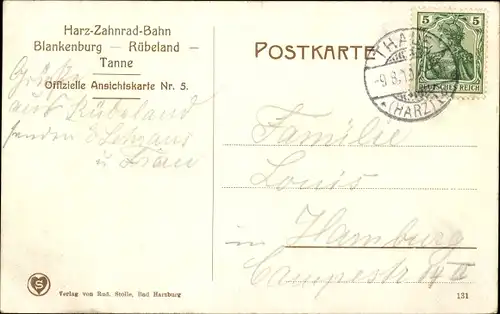 Harz-Zahnrad-Bahn
Blankenburg — Rübeland —
Tanne
Offizielle Ansichtskarte Nr. 5.
POSTKARTE
5 5
DEUTSCHES REICH
THALE
-9.8.1
(HARZ)
Grüße
aus Rübeland
senden
u Frau
Familie
Louis
in Hamburg
Campestr
S
Verlag von Rud. Stolle, Bad Harzburg
131